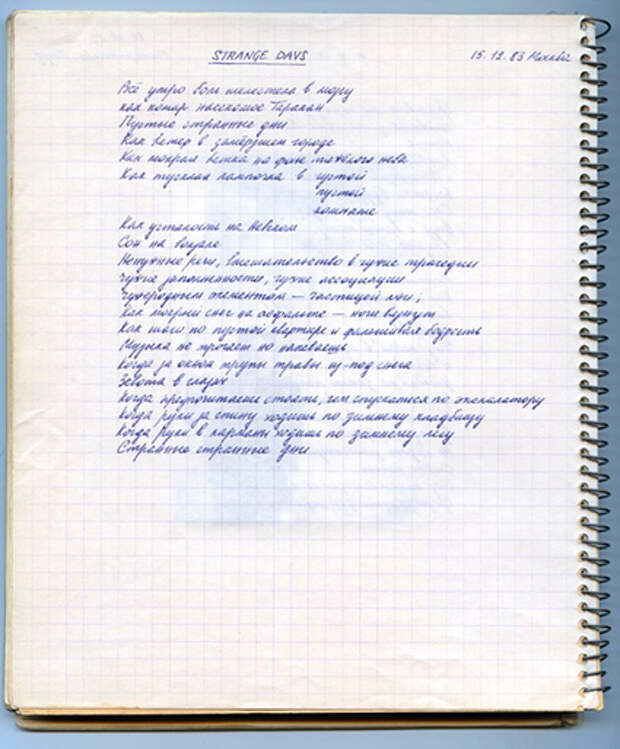 STRANGE DAYS
15.12.83 Москва
Всё утро боль шелестела в мозгу
как комар насекомое Таракан
Пустые странные дни
Как ветер в замёрзшем городе
Как мокрая ветка на фоне тяжёлого неба
Как тусклая лампочка в пустой
пустой
комнате
Как усталость на Невском
Сон на вокзале
Ненужные речи, вмешательство в чужие трагедии
чужие заполненности, чужие ассоциации
Чужеродным элементом — частицей лжи;
Как мокрый снег на асфальте — ноги вязнут
Как шаги по пустой квартире и фальшивая бодрость
Музыка не прочней но напеваешь
Когда за окном трупы травы из-под снега
Зевота в глазах
Когда предпочитаешь стоять, чем спускаться по эскалатору
Когда руки за спину ходишь по зимнему кладбищу
Когда руки в карманы ходишь по зимнему лесу
Странные странные дни